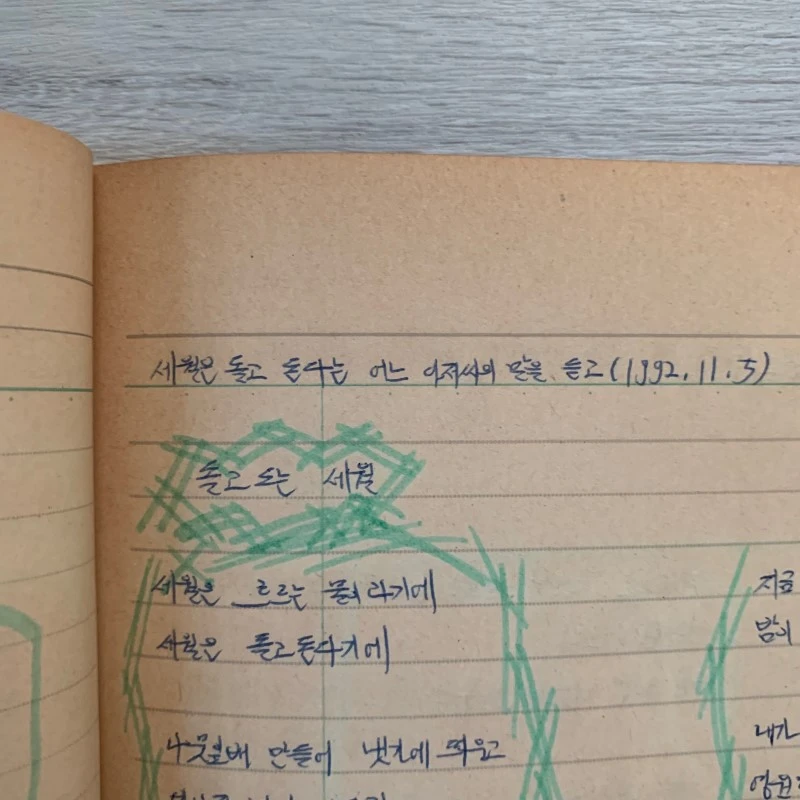 세월은 돌고 돈다는 어느 아저씨의 말을 듣고(1992.11.5)
돌고 도는 세월
세월은 흐르는 물이라기에
세월은 돌고 돈다기에
나뭇잎배 만들어 냇가에 띄우고
지금
밤의
내가
영원